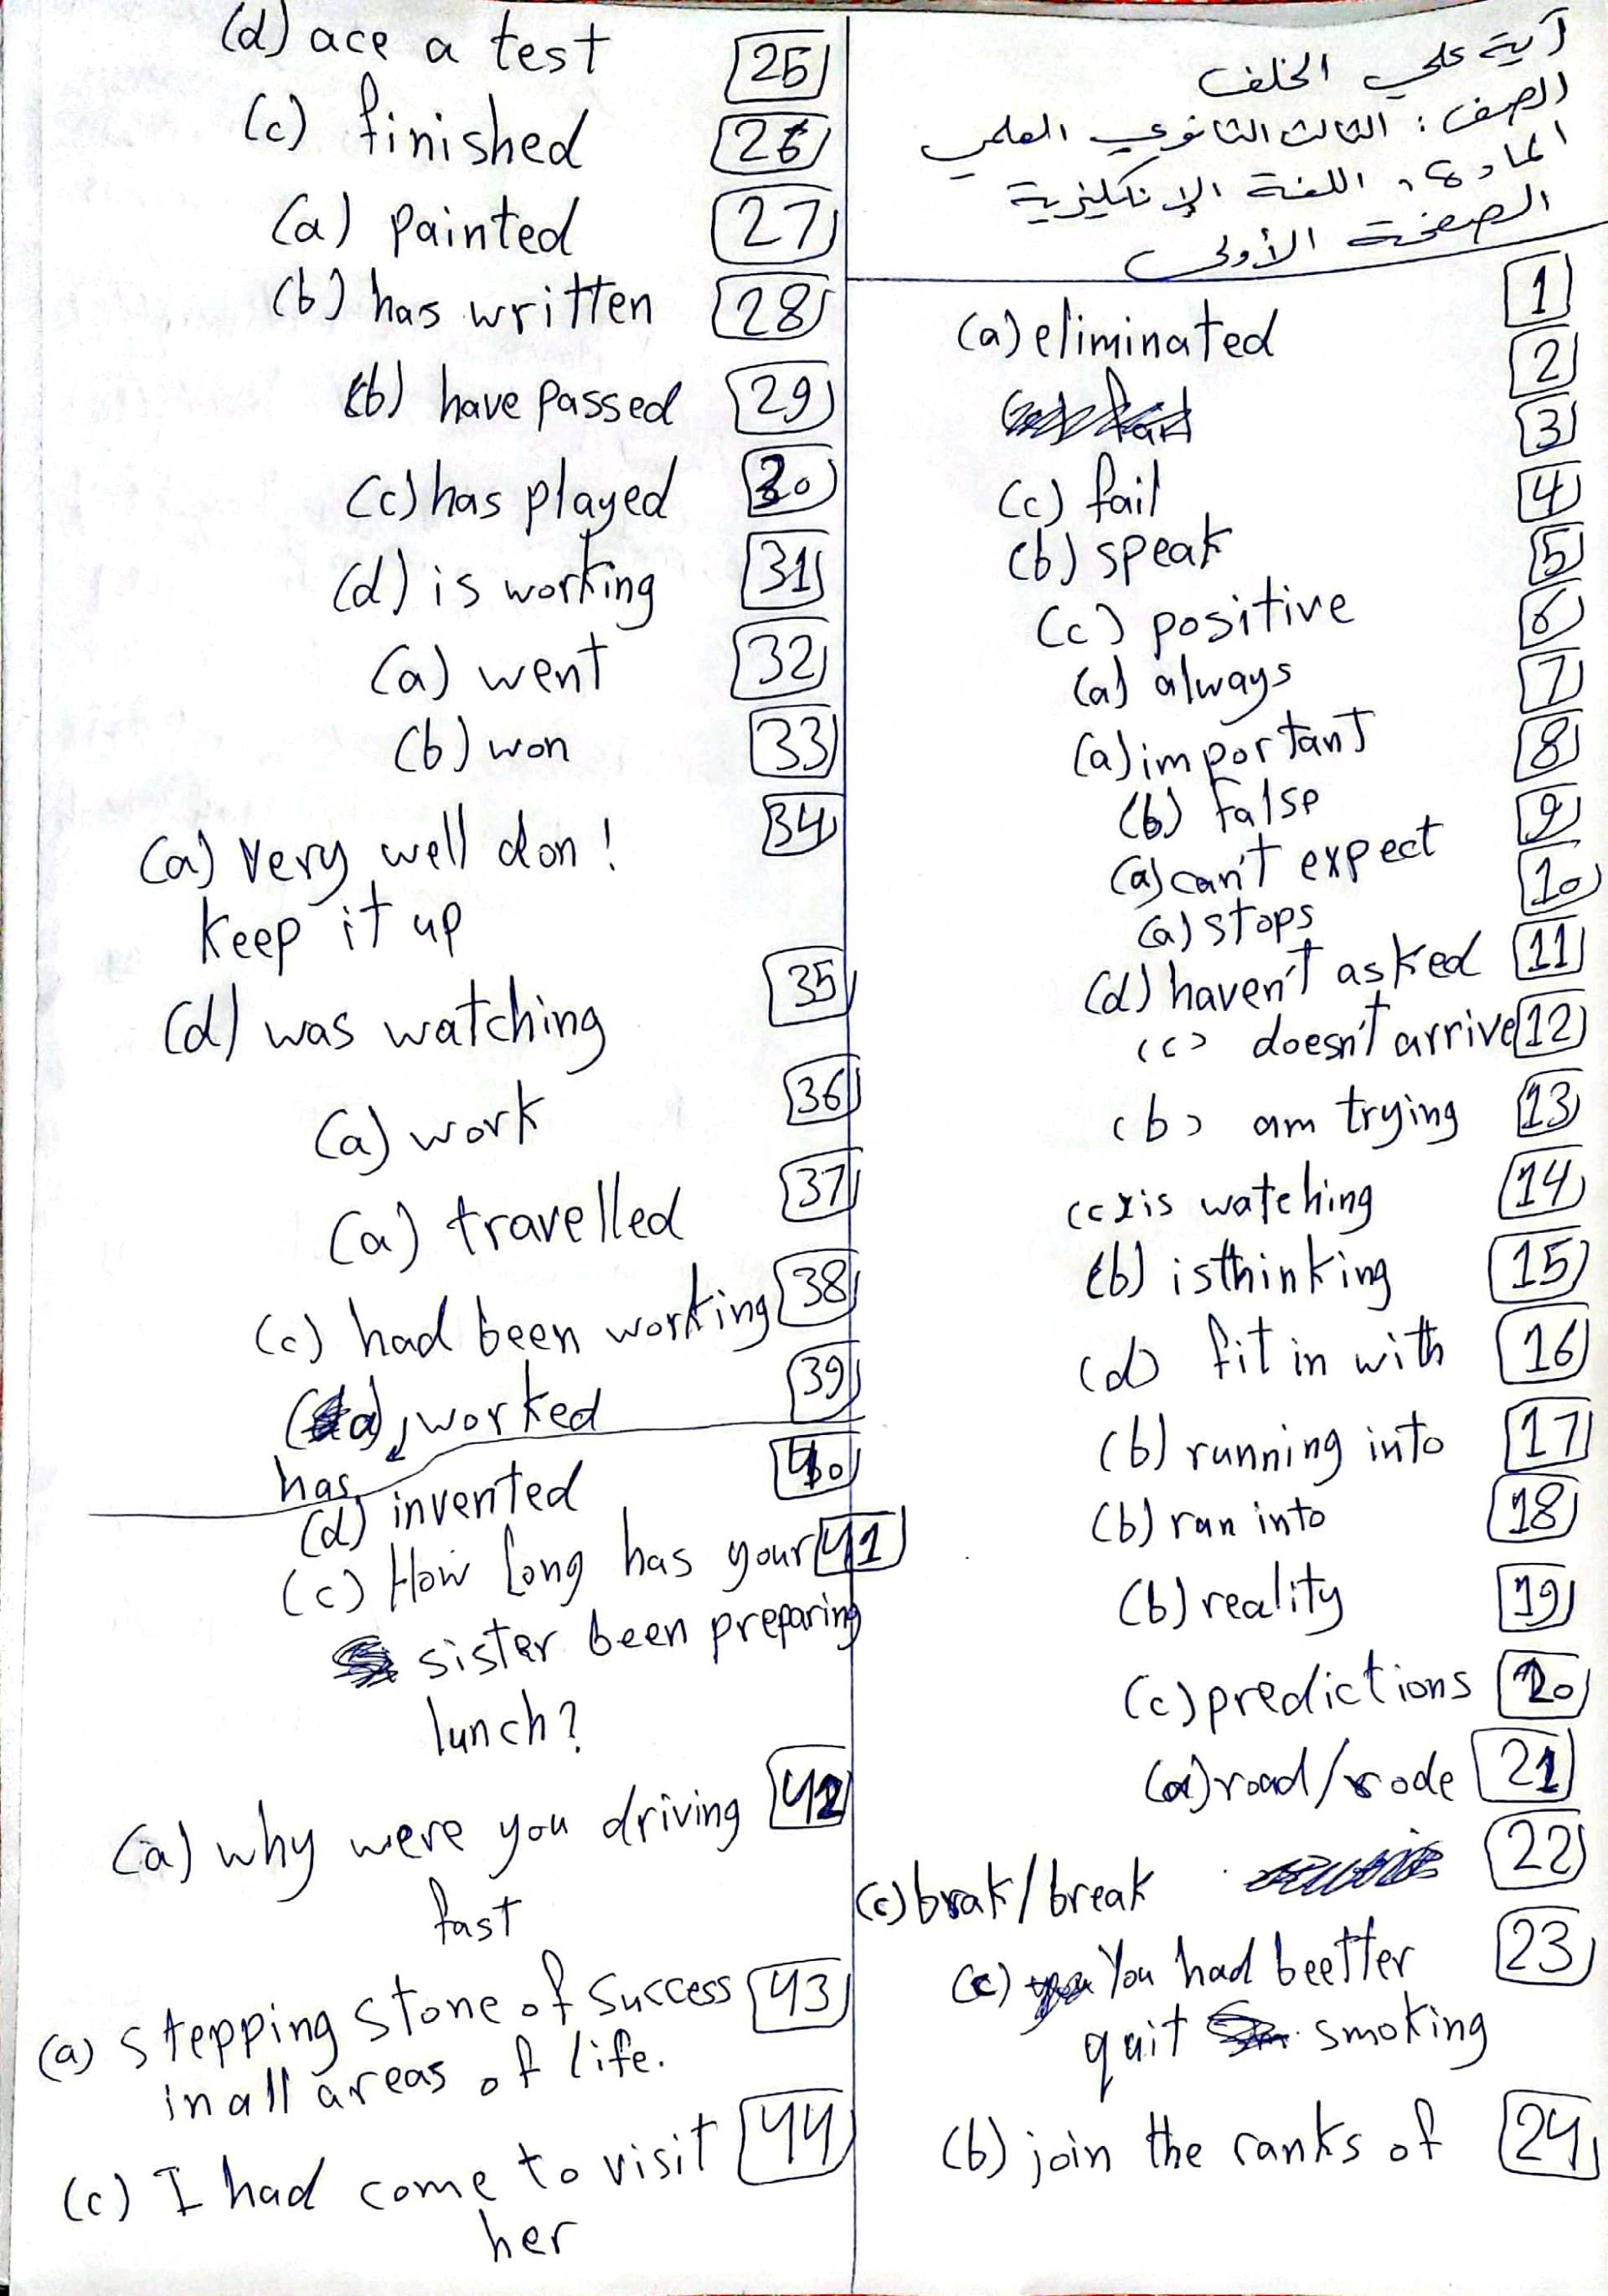 آية علي الخلف
الصف: الثالث الثانوي العلمي
المادة: اللغة الإنكليزية
الصفحة الأولى
1
(a) eliminated
2
3
(c) fail
4
(b) speak
5
(c) positive
6
(a) always
7
(a) important
8
(b) false
9
(a) can't expect
10
(a) stops
(d) haven't asked 11
(c) doesn't arrive 12
(b) am trying 13
(c) is watching 14
(b) is thinking 15
(d) fit in with 16
(b) running into 17
(b) ran into 18
(b) reality 19
(c) predictions 20
(a) road/rode 21
22
(c) brak/break
(c) You had beetter 23
quit smoking
(b) join the ranks of 24
(d) ace a test 25
(c) finished 26
(a) painted 27
(b) has written 28
(b) have passed 29
(c) has played 30
(d) is working 31
(a) went 32
(b) won 33
34
(a) very well don!
keep it up
35
(d) was watching
36
(a) work
37
(a) travelled
(c) had been working 38
39
(a) worked
has
40
(d) invented
(c) How long has your 41
sister been preparing
lunch?
(a) why were you driving 42
fast
(a) stepping stone of success 43
in all areas of life.
(c) I had come to visit 44
her